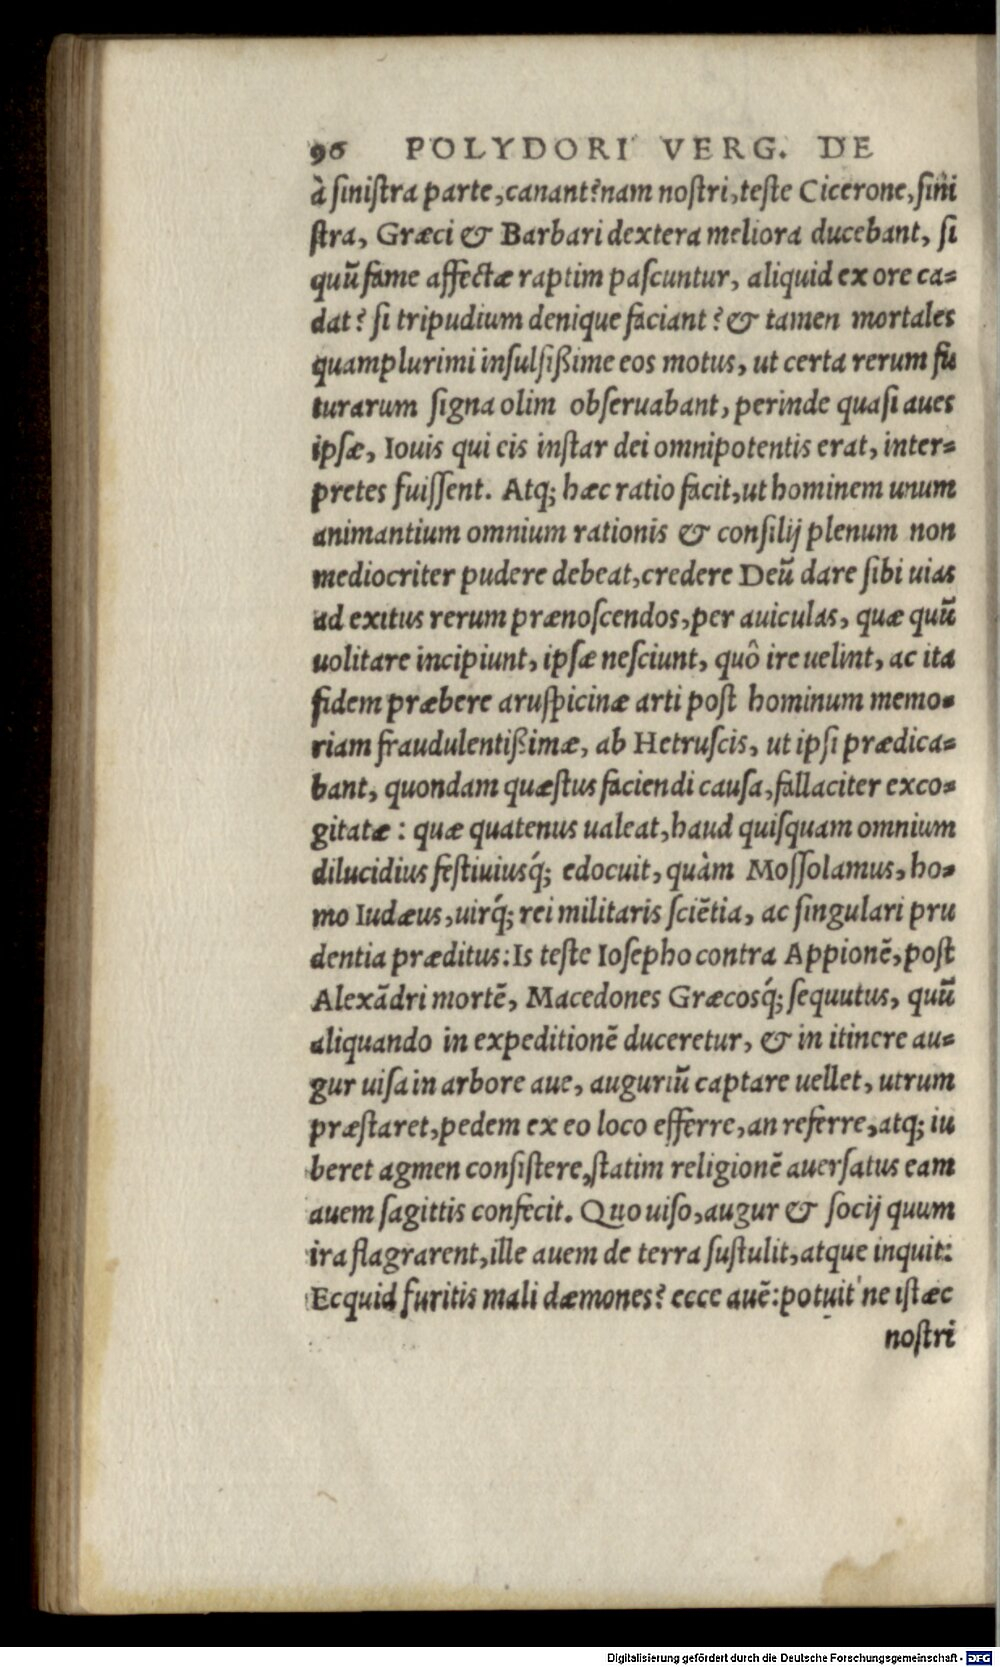 96 POLYDORI VERG. DE
à ſiniſtra parte, canant? nam noſtri, teſte Cicerone, ſini
ſtra, Græci & Barbari dextera meliora ducebant, ſi
quũ fame affectæ raptim paſcuntur, aliquid ex ore ca-
dat? ſi tripudium denique faciant? & tamen mortales
quamplurimi inſulſißime eos motus, ut certa rerum fu
turarum ſigna olim obſeruabant, perinde quaſi aues
ipſæ, Iouis qui eis inſtar dei omnipotentis erat, inter-
pretes fuiſſent. Atq; hæc ratio facit, ut hominem unum
animantium omnium rationis & conſilij plenum non
mediocriter pudere debeat, credere Deũ dare ſibi uias
ad exitus rerum prænoſcendos, per auiculas, quæ quũ
uolitare incipiunt, ipſæ neſciunt, quô ire uelint, ac ita
fidem præbere aruſpicinæ arti poſt hominum memo-
riam fraudulentißimæ, ab Hetruſcis, ut ipſi prædica-
bant, quondam quæſtus faciendi cauſa, fallaciter exco-
gitatæ : quæ quatenus ualeat, haud quiſquam omnium
dilucidius feſtiuiusq́; edocuit, quàm Moſſolamus, ho-
mo Iudæus, uirq́; rei militaris ſciẽtia, ac ſingulari pru
dentia præditus: Is teſte Ioſepho contra Appionẽ, poſt
Alexãdri mortẽ, Macedones Græcosq́; ſequutus, quũ
aliquando in expeditionẽ duceretur, & in itinere au-
gur uiſa in arbore aue, auguriũ captare uellet, utrum
præſtaret, pedem ex eo loco efferre, an referre, atq; iu
beret agmen conſiſtere, ſtatim religionẽ auerſatus eam
auem ſagittis confecit. Quo uiſo, augur & ſocij quum
ira flagrarent, ille auem de terra ſuſtulit, atque inquit:
Ecquid furitis mali dæmones? ecce auẽ: potuit'ne iſtæc
noſtri
Digitalisierung gefördert durch die Deutsche Forschungsgemeinschaft - DFG